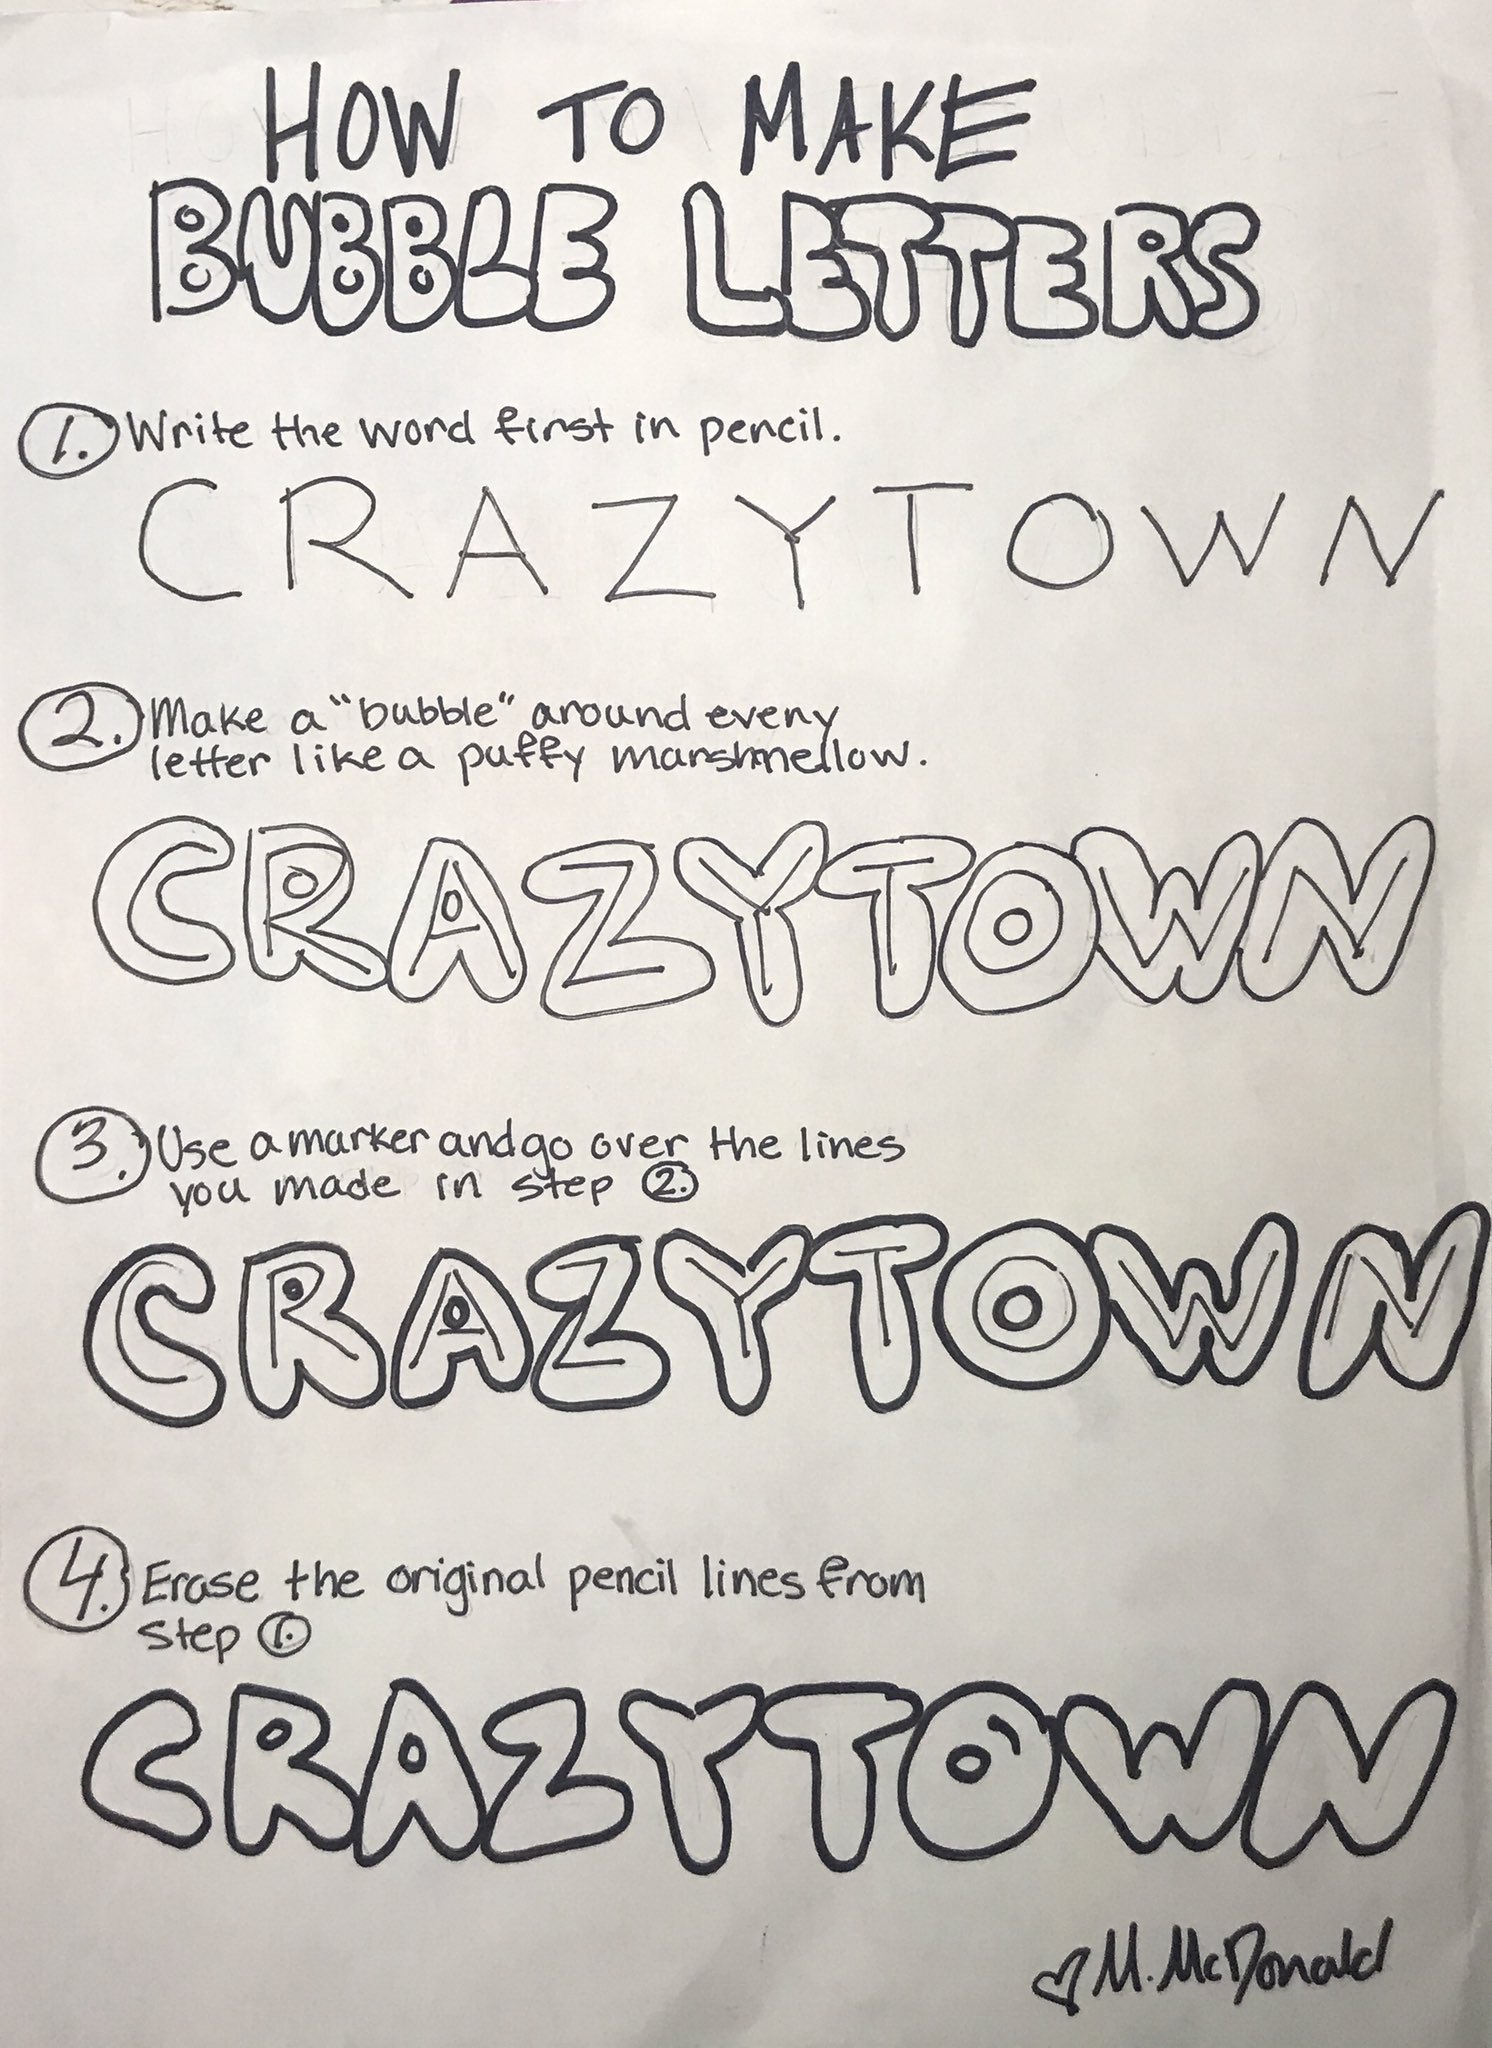 HOW TO MAKE
BUBBLE LETTERS
1. Write the word first in pencil.
CRAZYTOWN
2. Make a "bubble" around every
letter like a puffy marshmellow.
CRAZYTOWN
3. Use a marker and go over the lines
you made in step 2.
CRAZYTOWN
4. Erase the original pencil lines from
step 1.
CRAZYTOWN
♡ M. McDonald